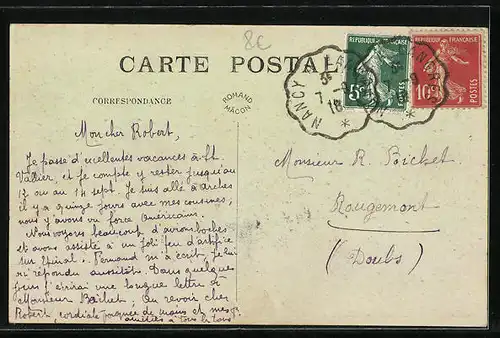 8€
CARTE POSTALE
CORRESPONDANCE
ROMAND
MACON
RÉPUBLIQUE FRANÇAISE
5c
POSTES
RÉPUBLIQUE FRANÇAISE
10c
POSTES
NANCY A LANGRES
7 - 9
18
Mon cher Robert,
Je passe d'excellentes vacances à St.
Vallier, et je compte y rester jusqu'au
12 ou au 14 sept. Je suis allé à Arches
il y a quinze jours avec mes cousines,
nous y avons vu force Américains.
Nous voyons beaucoup d'avions boches
et avons assisté à un joli feu d'artifice
sur Épinal. Fernand m'a écrit, je lui
ai répondu aussitôt. Dans quelques
jours j'écrirai une longue lettre à
Monsieur Bichet; Au revoir cher
Robert, cordiale poignée de mains et mes
amitiés à tous
Monsieur R. Bichet.
Rougemont
(Doubs)